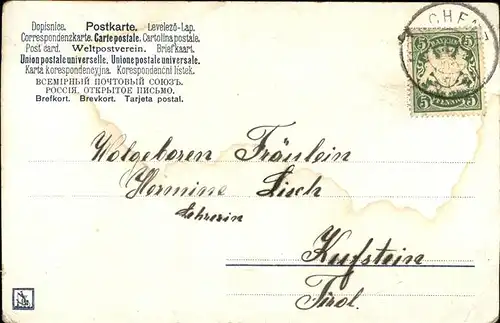 Dopisnice. Postkarte. Levelező-Lap.
Correspondenzkarte. Carte postale. Cartolina postale.
Post card. Weltpostverein. Briefkaart.
Union postale universelle. Unione postale universale.
Karta korespondencyjna. Korespondenční lístek.
ВСЕМІРНЫЙ ПОЧТОВЫЙ СОЮЗЪ.
РОССІЯ. ОТКРЫТОЕ ПИСЬМО.
Brefkort. Brevkort. Tarjeta postal.
CHEN
BAYERN
5 5
5 PFENNIG 5
Wolgeboren Fräulein
Hermine Lisch
Lehrerin
Kufstein
Tirol.